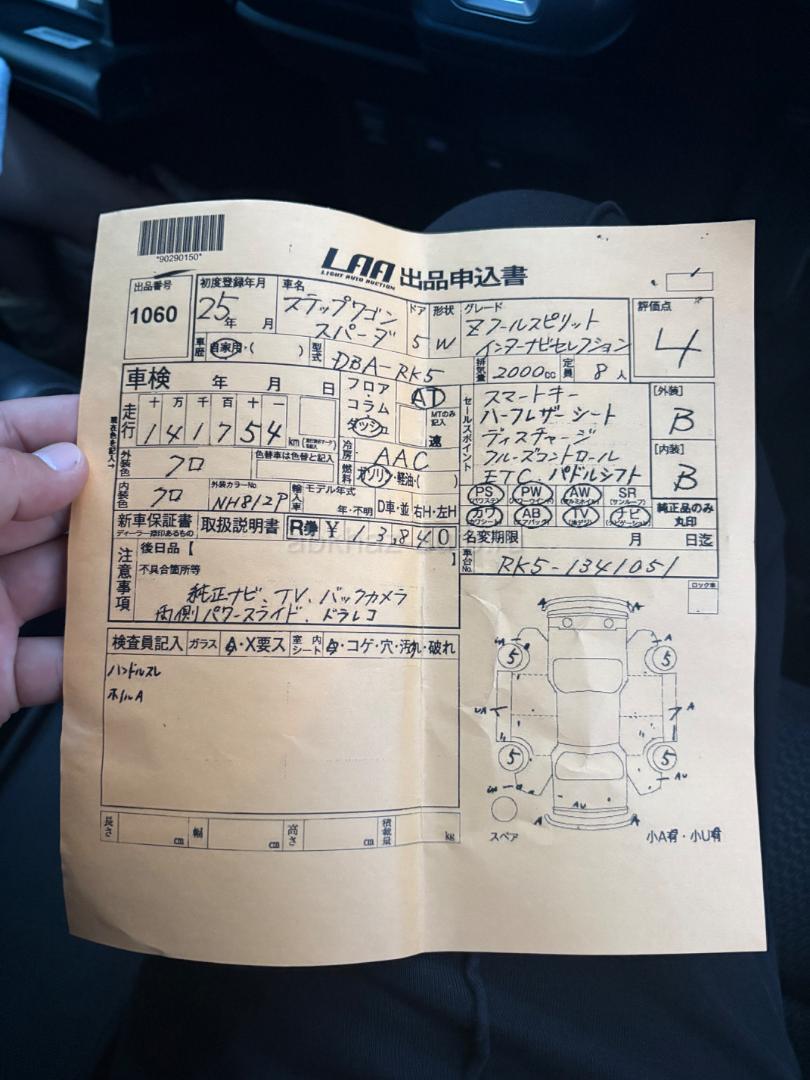 *90290150*
LAA 出品申込書
LIGHT AUTO AUCTION
出品番号
1060
初度登録年月
25年 月
車名
ステップワゴン
スパーダ
ドア
5
形状
W
グレード
Zクールスピリット
インターナビセレクション
評価点
4
車歴 自家用・( )
型式
DBA-RK5
排気量 2000cc
定員 8人
車検 年 月 日
フロア・コラム ダッシュ
AT
MTのみ記入
速
走行
十 万 千 百 十 一
141754 km
冷房 AAC
燃料 ガソリン・軽油・( )
セールスポイント
スマートキー
ハーフレザーシート
ディスチャージ
クルーズコントロール
ETC パドルシフト
[外装]
B
[内装]
B
現在色を記入→
外装色 クロ
色替車は色替と記入
内装色 クロ
外装カラーNo.
NH812P
輸入車
モデル年式
年・不明
D車・並
右H・左H
PS (パワステ) PW (パワーウインド) AW (アルミホイル) SR (サンルーフ)
カワ (カワシート) AB (エアバッグ) TV ナビ (ナビゲーション)
純正品のみ
丸印
新車保証書
ディーラー捺印あるもの
取扱説明書
R券 ¥ 13,840
名変期限 月 日迄
車台No. RK5-1341051
abkhaz-auto.ru
注意事項
後日品【 】
不具合箇所等
純正ナビ、TV、バックカメラ
両側パワースライド、ドラレコ
ロック車
検査員記入 ガラス A・X要ス 室内シート ・コゲ・穴・汚れ・破れ
ハンドルスレ
ホイルA
A A
A
5 5
A
5 5
AU
AU
A A
スペア
小A有・小U有
長さ cm 幅 cm 高さ cm 積載量 kg